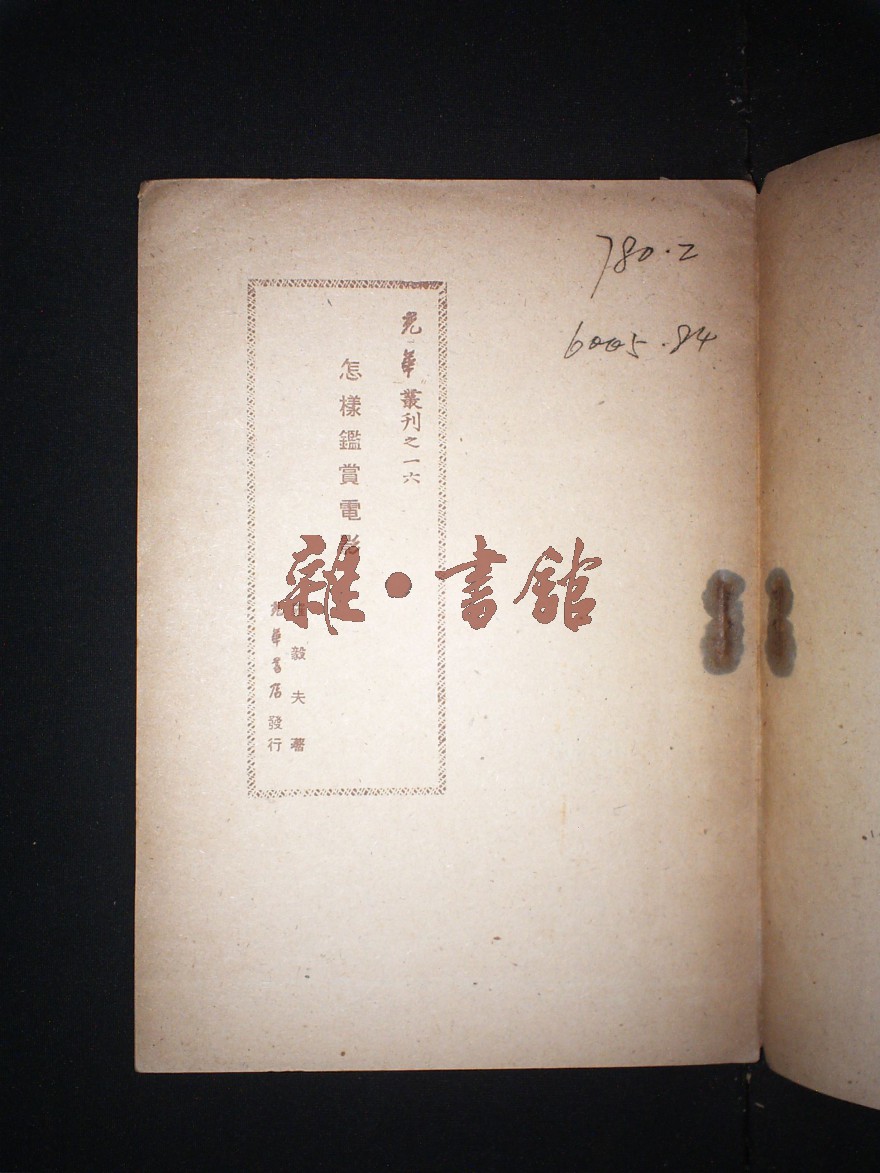 780.2
6005.84
光華叢刊之一六
怎樣鑑賞電影
毅夫著
光華書店發行
雜·書館